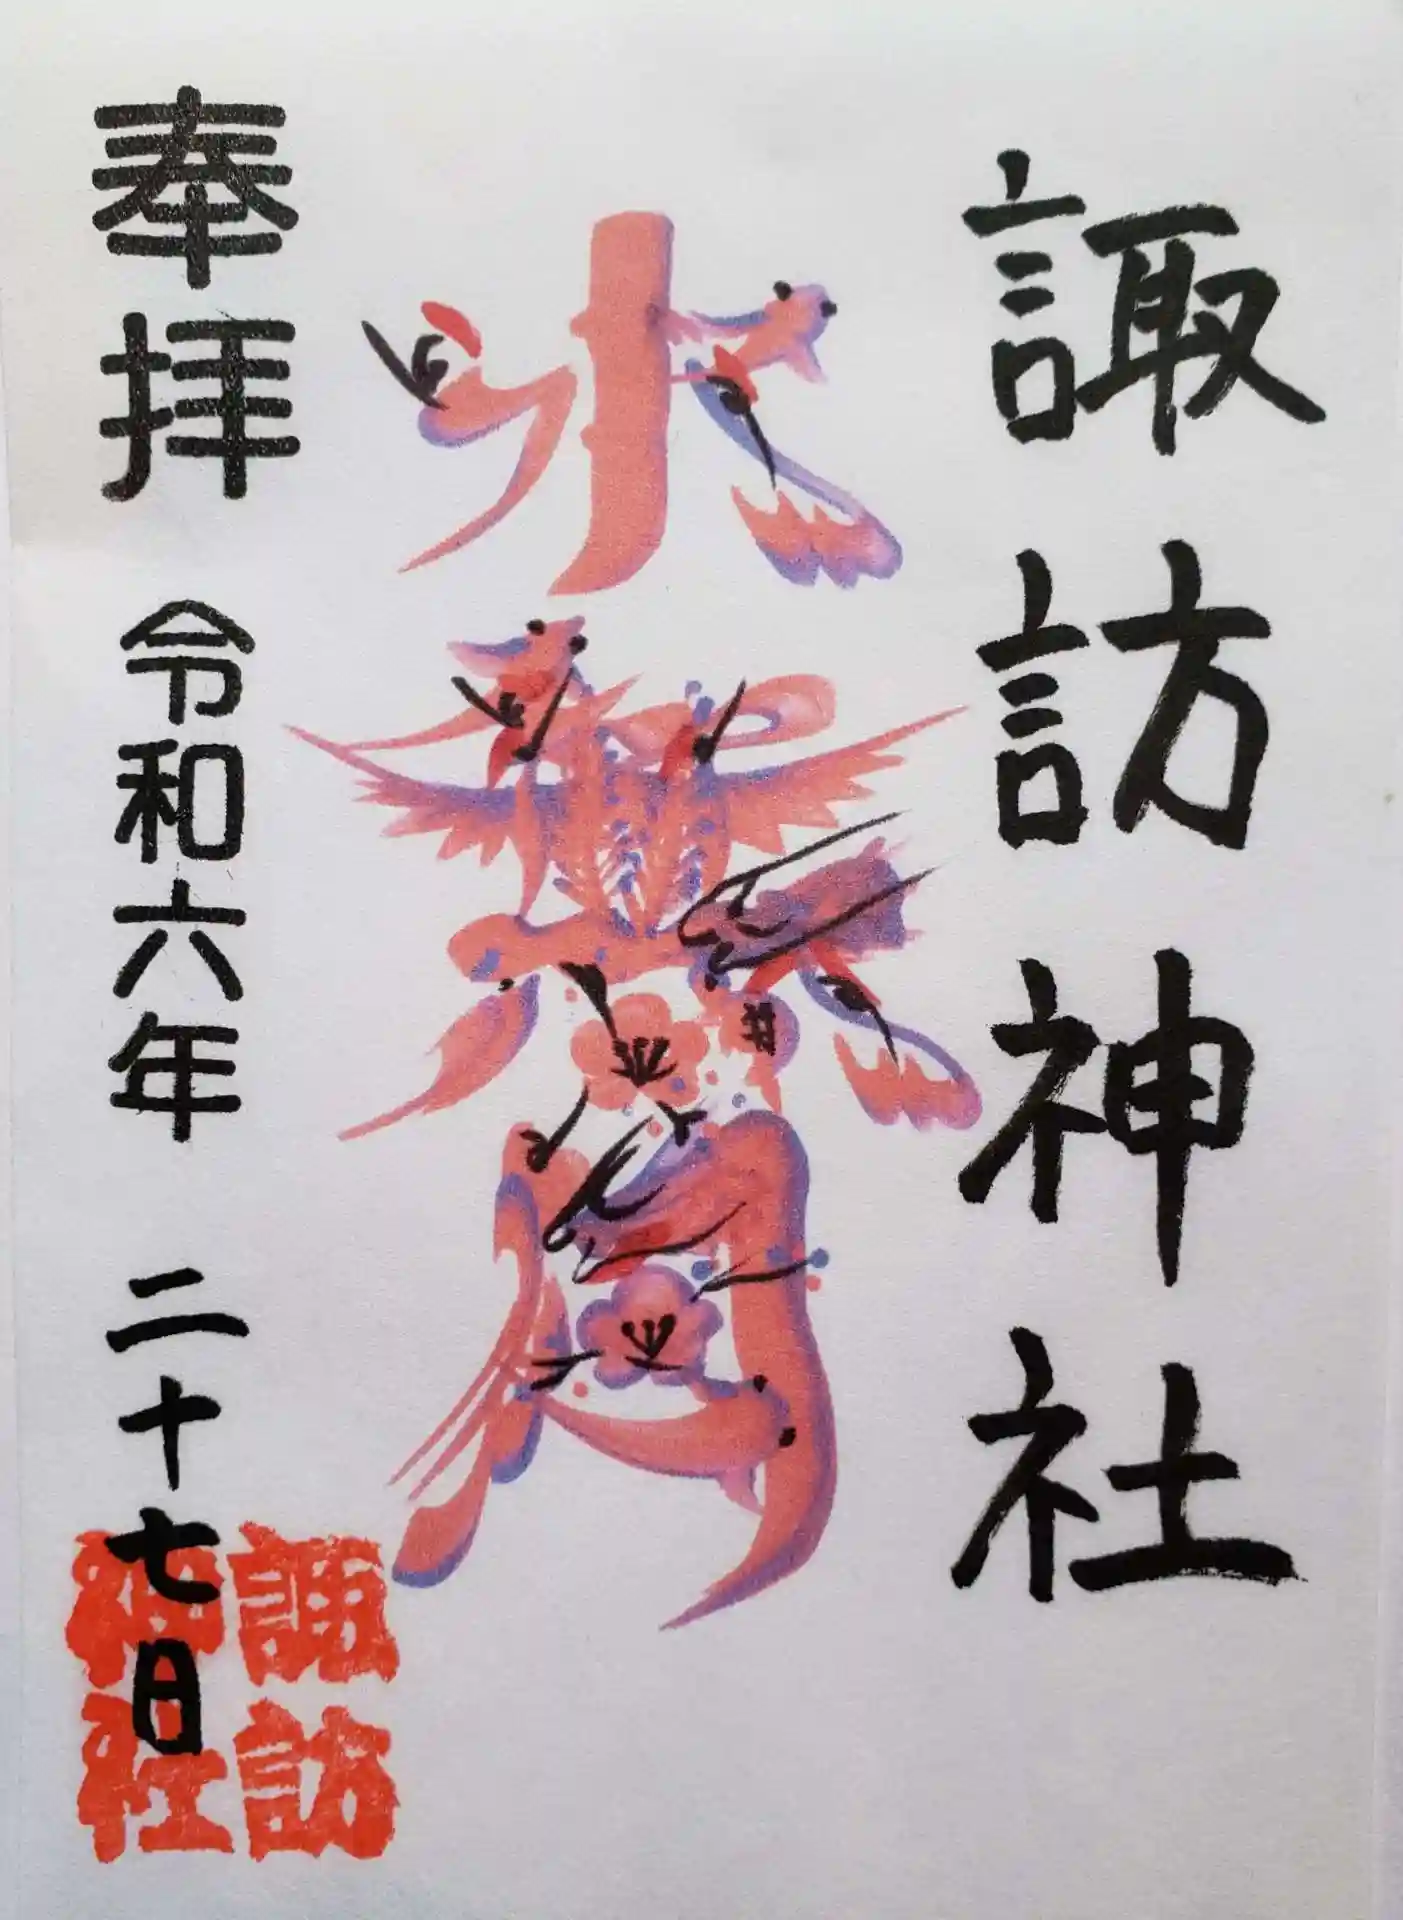 諏訪神社
水無月
奉拝 令和六年 二十七日
諏訪
神社